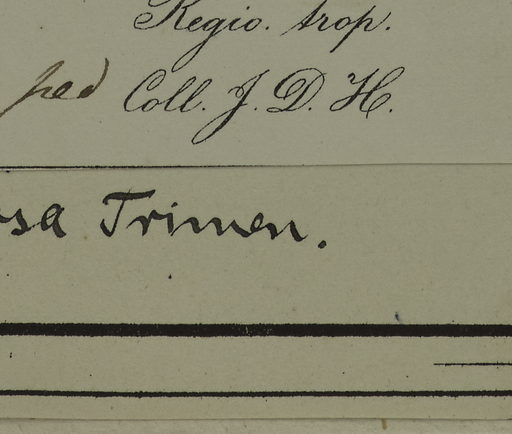 Regio. trop.
ped Coll. J. D. H.
sa Trimen.